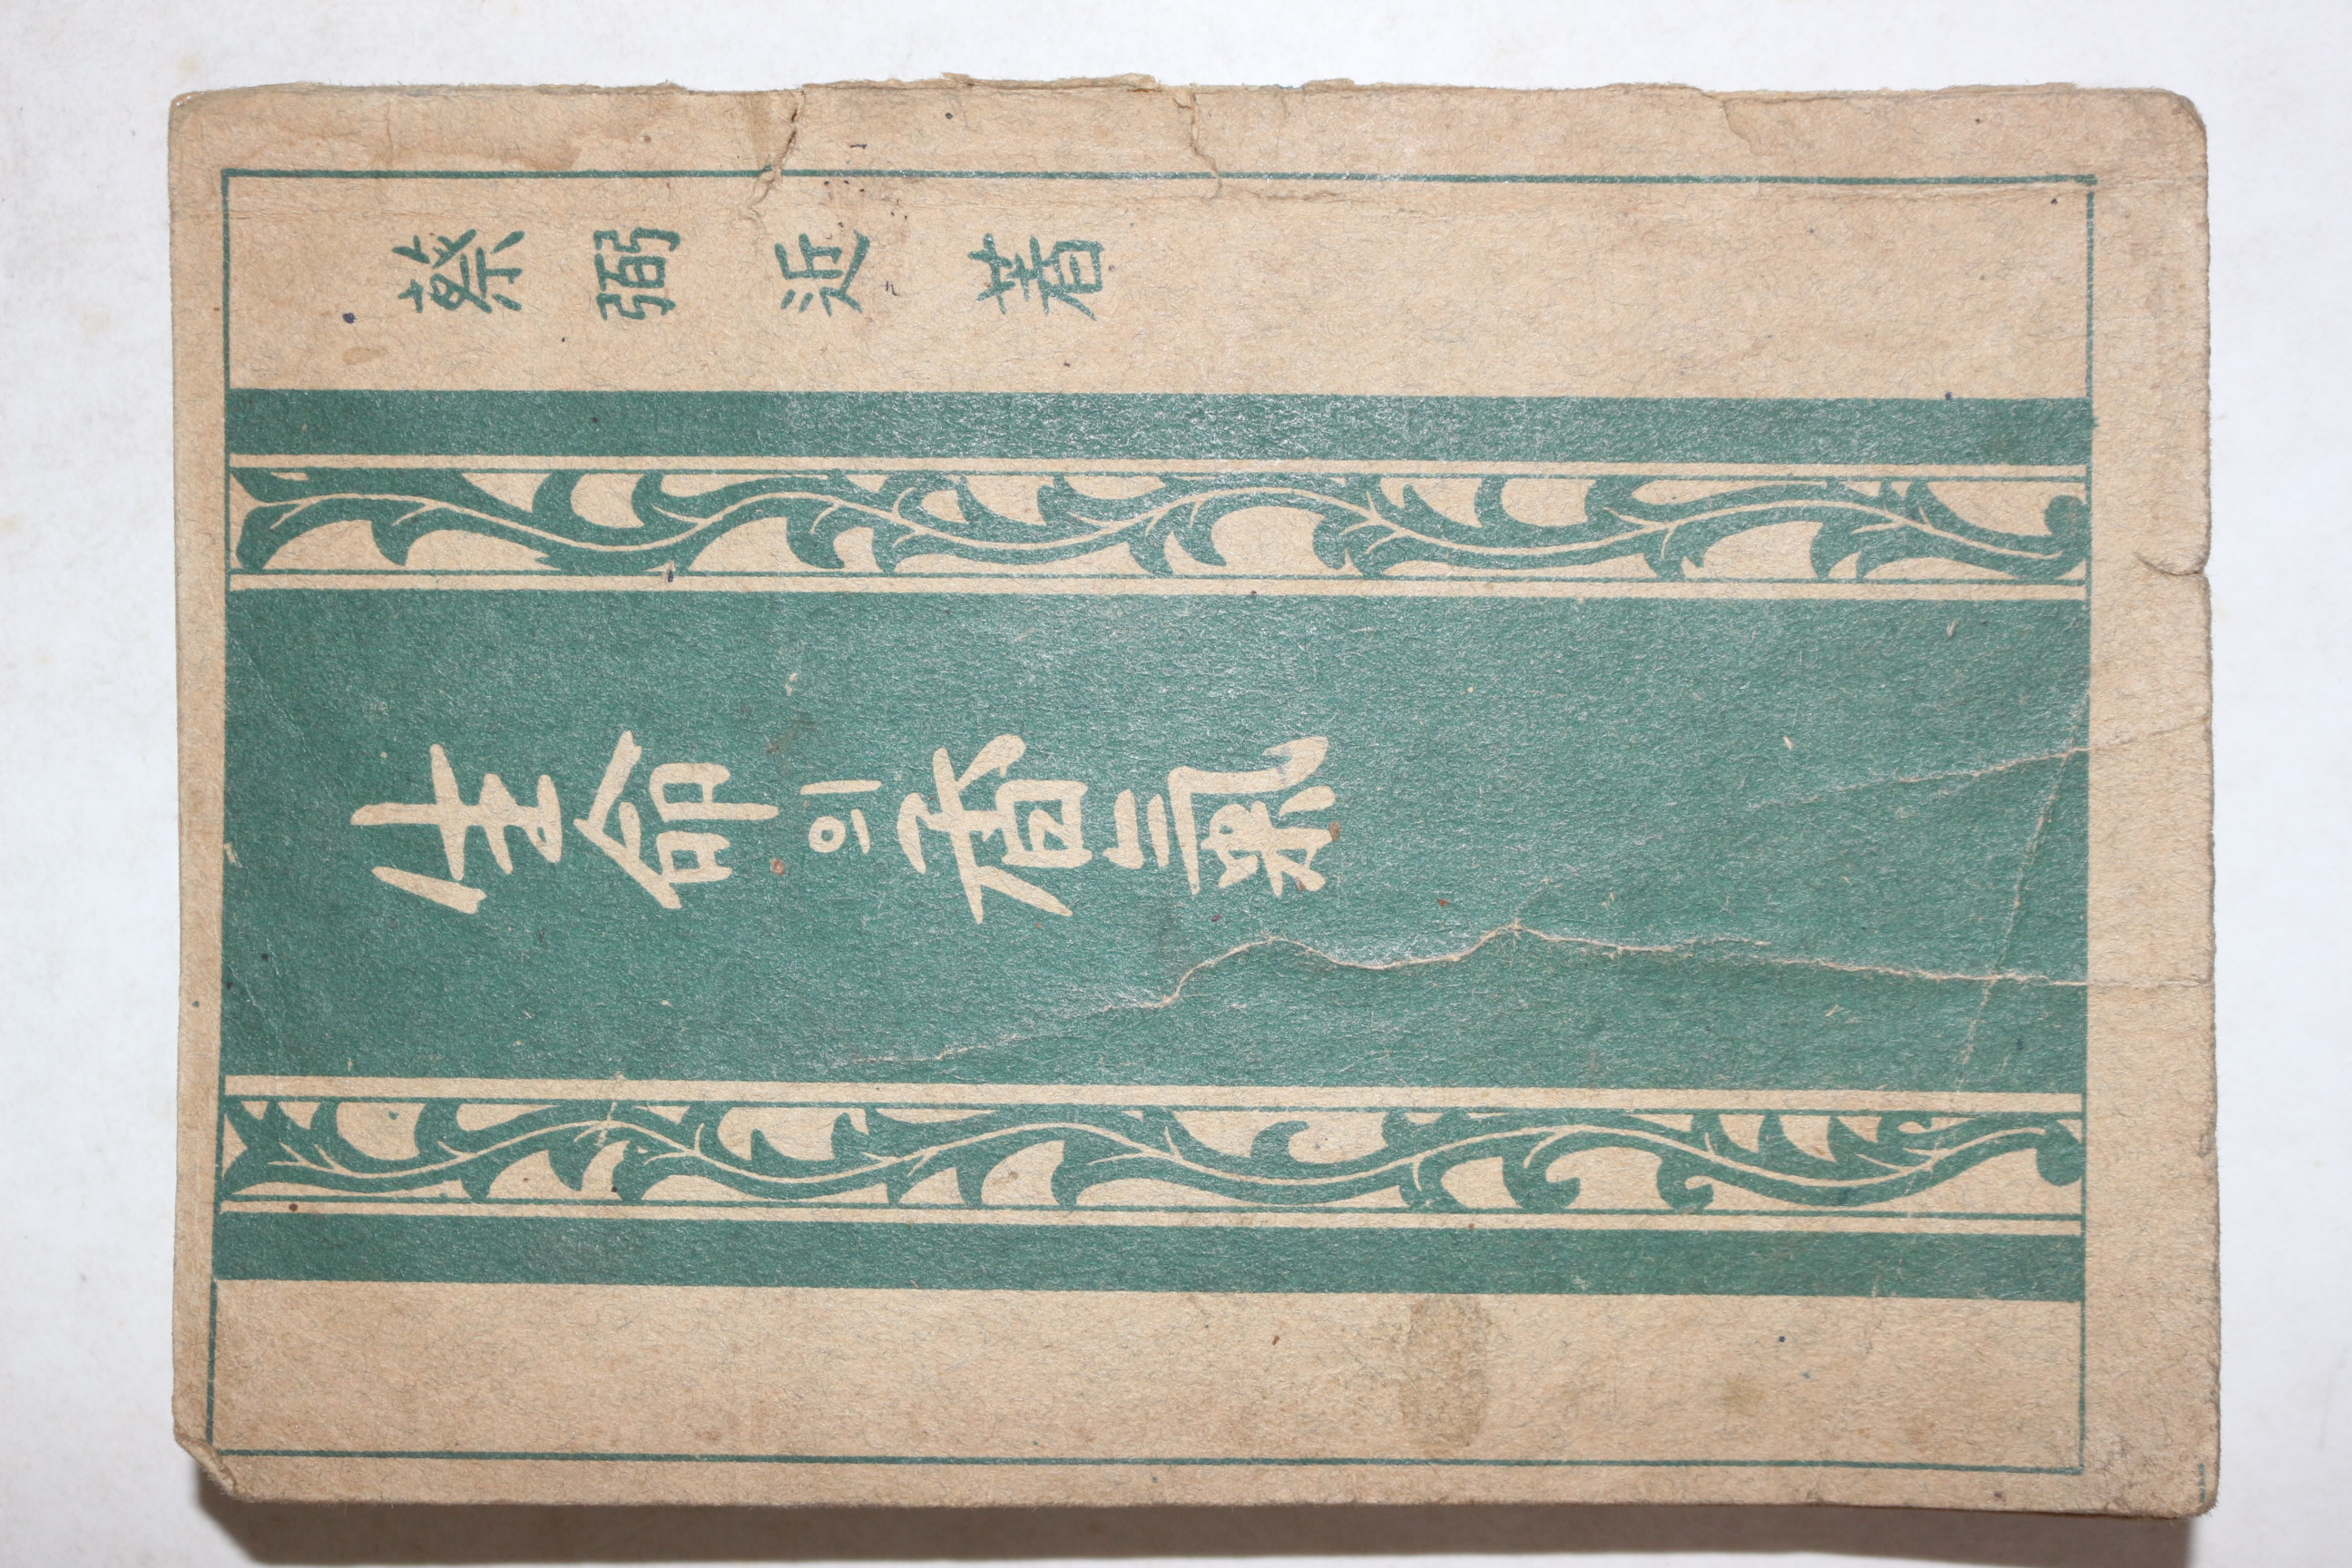 生命의香氣
蔡弼近 著